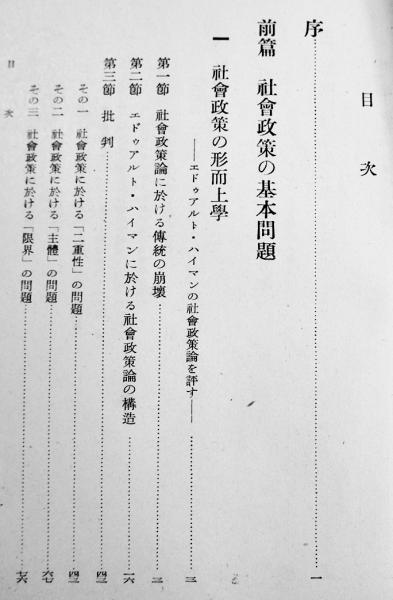 目次
序 一
前篇 社會政策の基本問題
一 社會政策の形而上學
——エドゥアルト・ハイマンの社會政策論を評す—— 三
第一節 社會政策論に於ける傳統の崩壞 三
第二節 エドゥアルト・ハイマンに於ける社會政策論の構造 一六
第三節 批判 四三
その一 社會政策に於ける「二重性」の問題 四三
その二 社會政策に於ける「主體」の問題 六七
その三 社會政策に於ける「限界」の問題 七六
目次